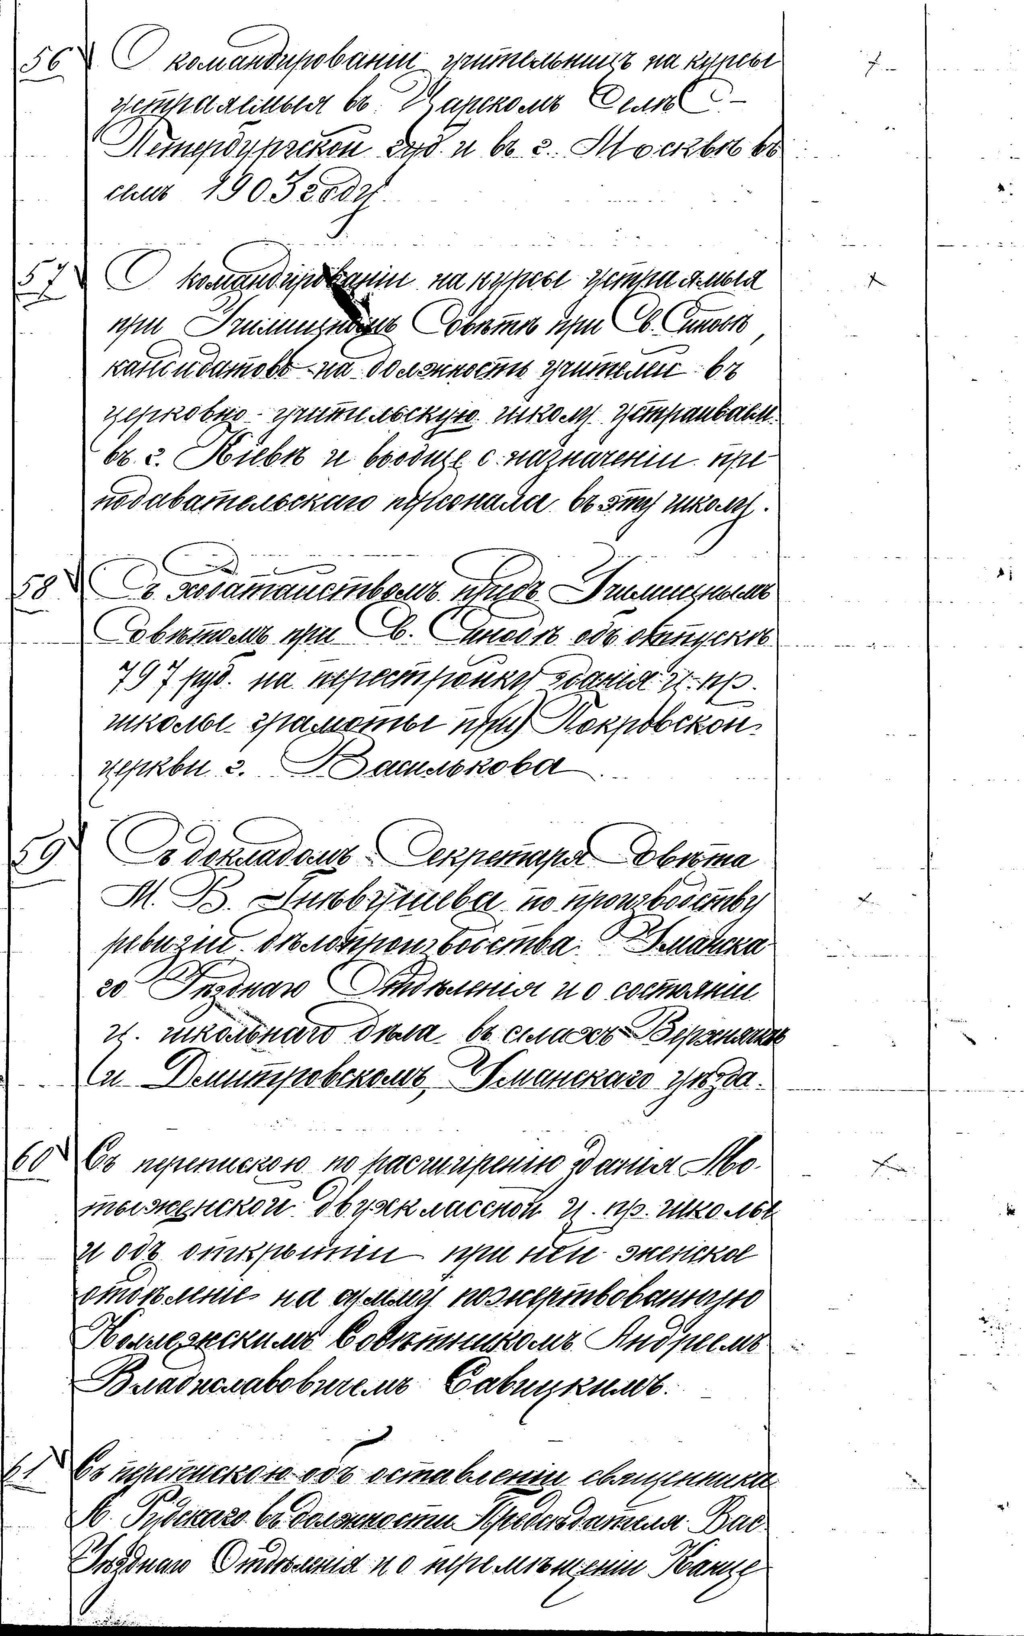 56 О командированіи учительницъ на курсы
устраяемыя въ Царскомъ Селѣ С-
Петербургской губ. и въ г. Москвѣ въ
семъ 1903 году.
57 О командированіи на курсы устраямыя
при Училищномъ Совѣтѣ при Св. Синодѣ,
кандидатовъ на должность учителей въ
церковно-учительскую школу устраиваем.
въ г. Кіевѣ и вообще о назначеніи пре
подавательскаго персонала въ эту школу.
58 Съ ходатайствомъ предъ Училищнымъ
Совѣтомъ при Св. Синодѣ объ отпускѣ
797 руб. на перестройку зданія ц.-пр.
школы грамоты при Покровской
церкви г. Василькова.
59 Съ докладомъ Секретаря Совѣта
М. В. Гнѣвушева по производству
ревизіи дѣлопроизводства Уманска
го Уѣзднаго Отдѣленія и о состояніи
ц. школьнаго дѣла въ селахъ Верхнячкѣ
и Дмитровскомъ, Уманскаго уѣзда.
60 Съ перепискою по расширенію зданія Мо-
тыженской двухклассной ц.-пр. школы
и объ открытіи при ней женска
отдѣленіе на сумму пожертвованную
Коллежскимъ Совѣтникомъ Андреемъ
Владиславовичемъ Савицкимъ.
61 Съ перепискою объ оставленіи священника
Рудскаго въ должности Предсѣдателя Вас.
Уѣзднаго Отдѣленія и о перемѣщеніи Канце